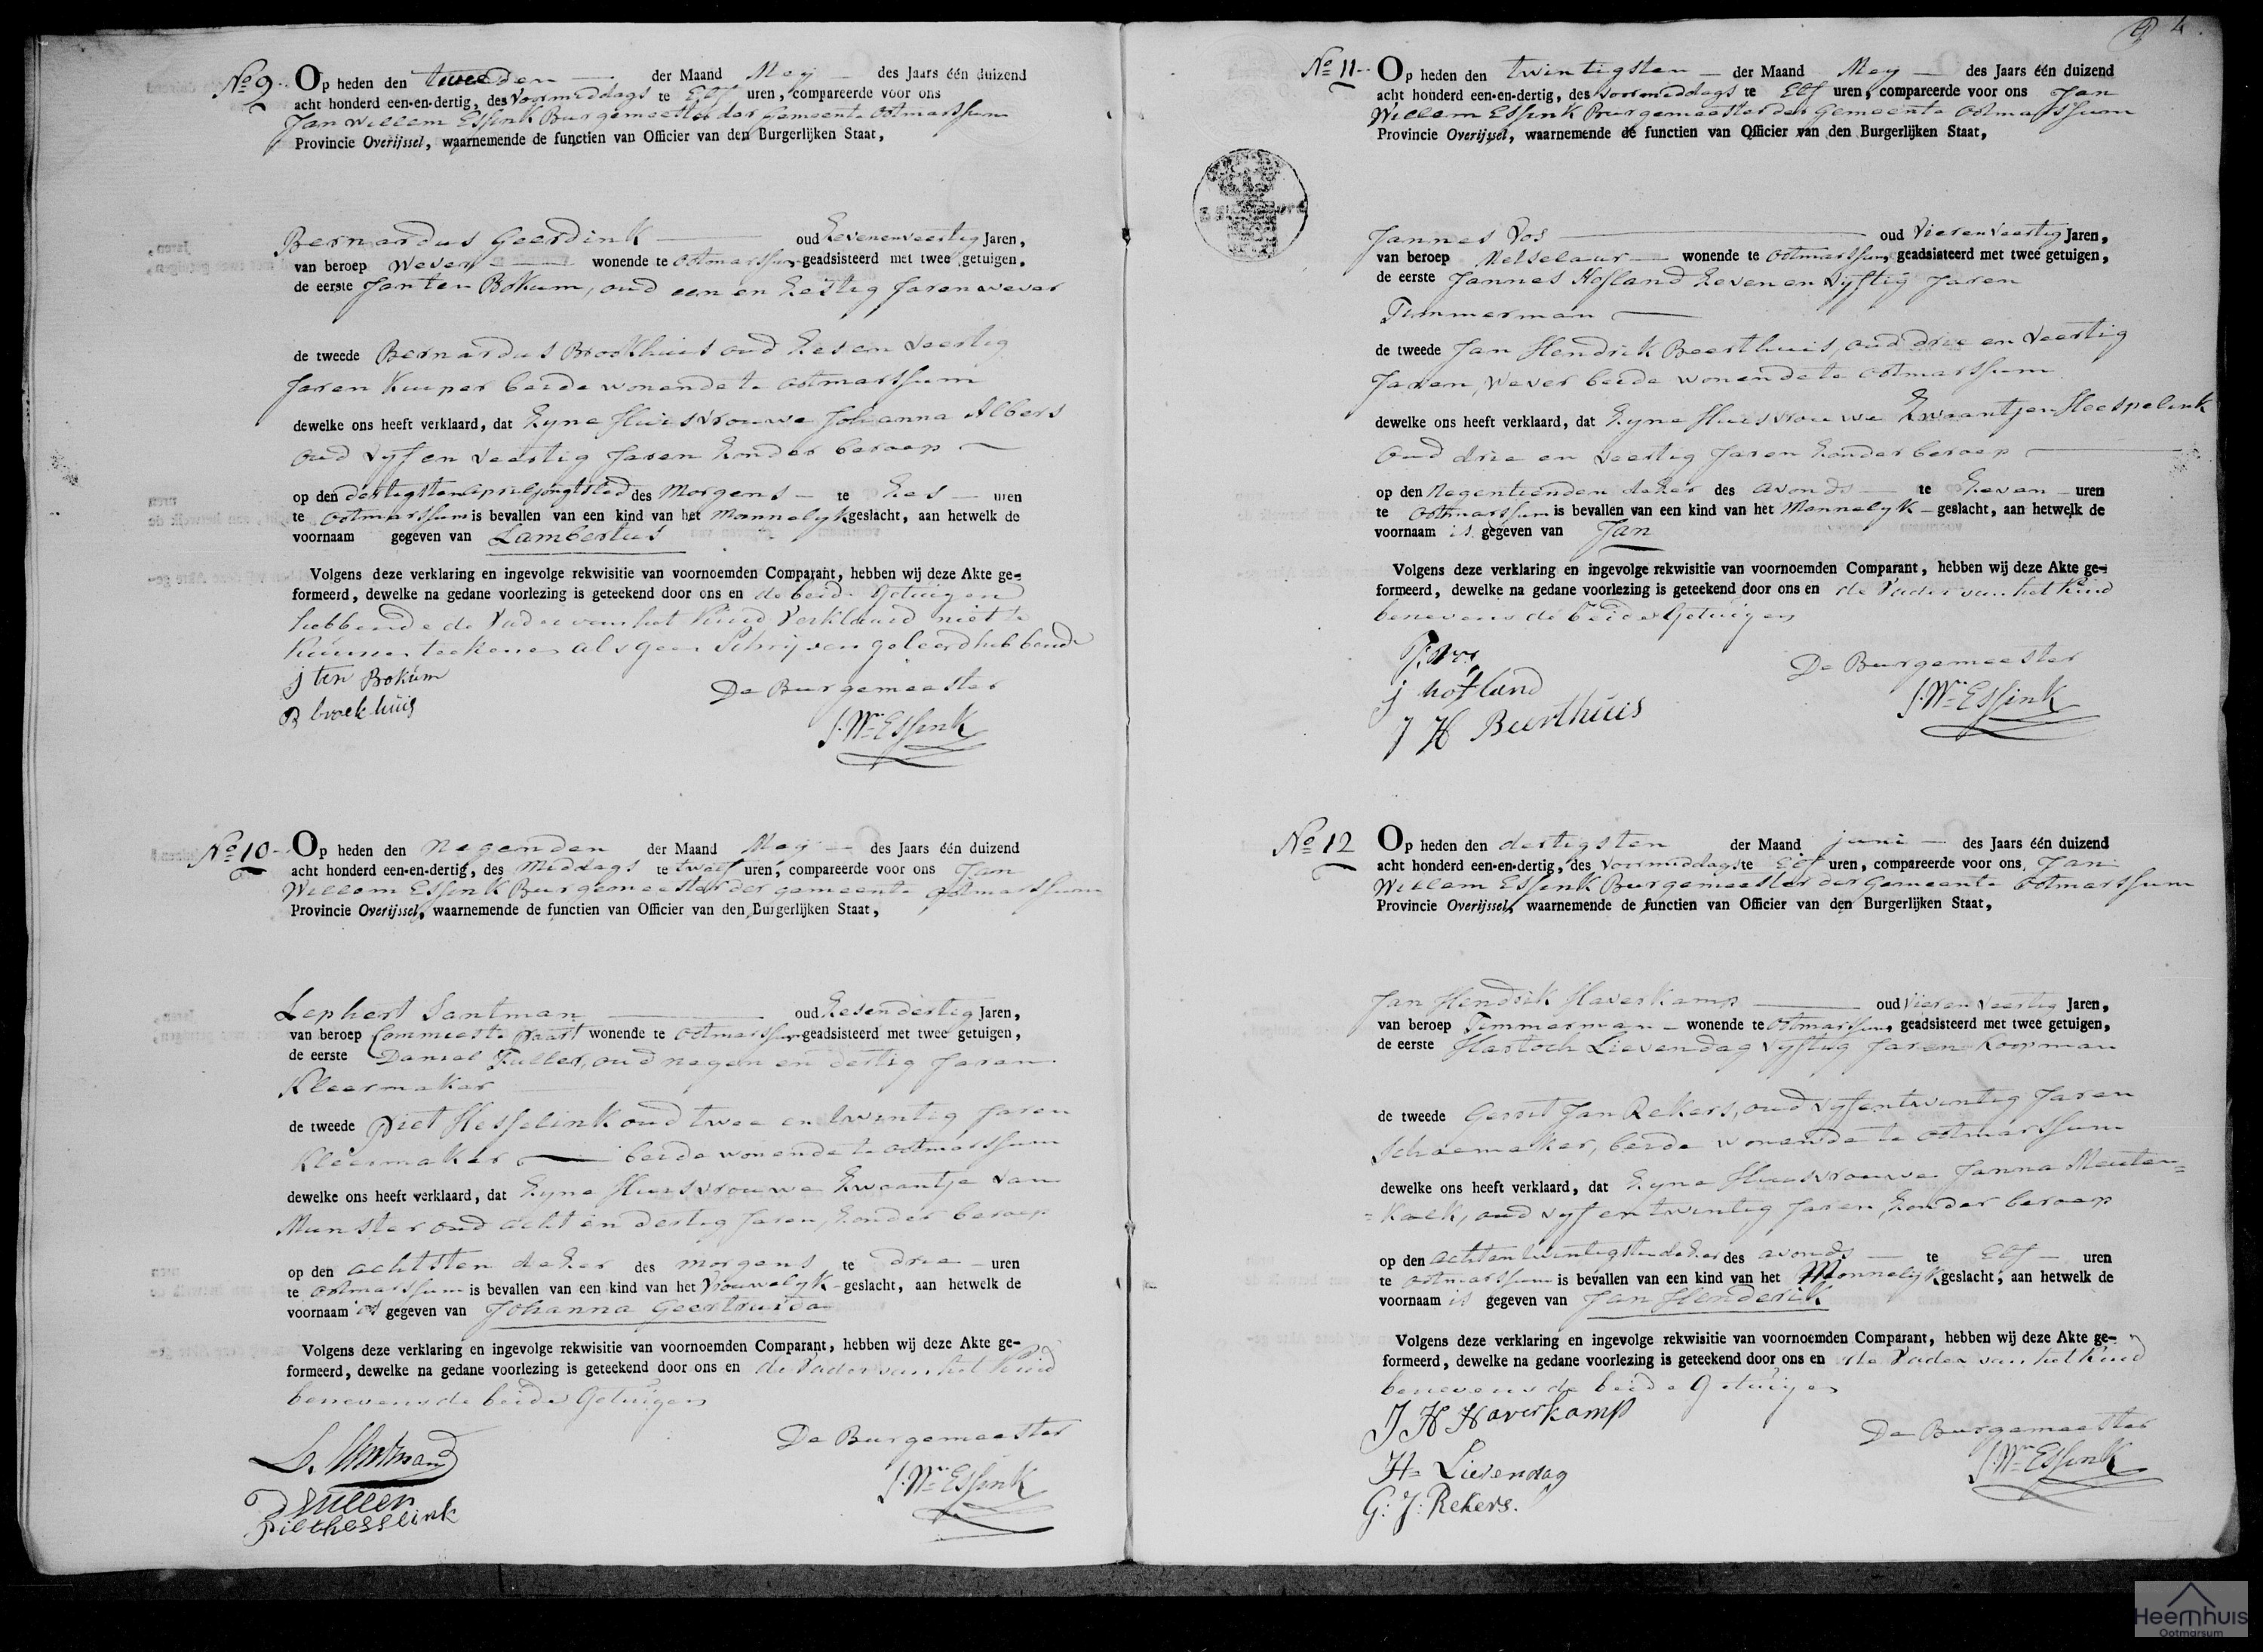 No 9. Op heden den tweeden der Maand Mey des Jaars één duizend
acht honderd een-en-dertig, des voormiddags te Elf uren, compareerde voor ons
Jan Willem Essink Burgemeester der Gemeente Ootmarssum
Provincie Overijssel, waarnemende de functien van Officier van den Burgerlijken Staat,
Bernardus Geerdink oud Zevenenveertig Jaren,
van beroep Wever wonende te Ootmarssum geadsisteerd met twee getuigen,
de eerste Jan ten Bokum, oud een en Zestig Jaren wever
de tweede Bernardus Broekhuis oud Zes en Veertig
Jaren Kuiper beide wonende te Ootmarssum
dewelke ons heeft verklaard, dat Zyne Huisvrouwe Johanna Albers
oud vyf en Veertig Jaren Zonder beroep
op den dertigsten April jongstled des Morgens te Zes uren
te Ootmarssum is bevallen van een kind van het Mannelyk geslacht, aan hetwelk de
voornaam gegeven van Lambertus
Volgens deze verklaring en ingevolge rekwisitie van voornoemden Comparant, hebben wij deze Akte ge-
formeerd, dewelke na gedane voorlezing is geteekend door ons en de beide Getuigen
hebbende de Vader van het Kind Verklaard niet te
Kunnen teekenen als geen Schryven geleerd hebbende
j ten Bokum
B broekhuis
De Burgemeester
J. Wm Essink
No 10. Op heden den negenden der Maand Mey des Jaars één duizend
acht honderd een-en-dertig, des Middags te twelf uren, compareerde voor ons Jan
Willem Essink Burgemeester der gemeente Ootmarssum
Provincie Overijssel, waarnemende de functien van Officier van den Burgerlijken Staat,
Lephert Santman oud Zesendertig Jaren,
van beroep wonende te Ootmarssum geadsisteerd met twee getuigen,
de eerste Daniel Fuller, oud negen en dertig Jaren
Kleermaker
de tweede Piet Hesselink oud twee en twintig Jaren
Kleermaker beide wonende te Ootmarssum
dewelke ons heeft verklaard, dat Zyne Huisvrouwe Zwaantje van
Munster oud acht en dertig Jaren, Zonder beroep
op den achtsten dezer des morgens te drie uren
te Ootmarssum is bevallen van een kind van het Vrouwelyk geslacht, aan hetwelk de
voornaam is gegeven van Johanna Geertruida
Volgens deze verklaring en ingevolge rekwisitie van voornoemden Comparant, hebben wij deze Akte ge-
formeerd, dewelke na gedane voorlezing is geteekend door ons en de Vader van het Kind
benevens de beide Getuigen
L. Santman
D fuller
Piet hesselink
De Burgemeester
J. Wm Essink
4
No 11. Op heden den twintigsten der Maand Mey des Jaars één duizend
acht honderd een-en-dertig, des voormiddags te Elf uren, compareerde voor ons Jan
Willem Essink Burgemeester der Gemeente Ootmarssum
Provincie Overijssel, waarnemende de functien van Officier van den Burgerlijken Staat,
Jannes Vos oud Vierenveertig Jaren,
van beroep Metselaar wonende te Ootmarssum, geadsisteerd met twee getuigen,
de eerste Jannes Hofland Zeven en vyftig Jaren
Timmerman
de tweede Jan Hendrik Beerthuis, oud drie en Veertig
Jaren, Wever beide wonende te Ootmarssum
dewelke ons heeft verklaard, dat Zyne Huisvrouwe Zwaantjen Heespelink
Oud drie en Veertig Jaren Zonder beroep
op den Negentienden dezer des avonds te Zeven uren
te Ootmarssum is bevallen van een kind van het Mannelyk geslacht, aan hetwelk de
voornaam is gegeven van Jan
Volgens deze verklaring en ingevolge rekwisitie van voornoemden Comparant, hebben wij deze Akte ge-
formeerd, dewelke na gedane voorlezing is geteekend door ons en de Vader van het Kind
benevens de beide Getuigen
j hofland
J H Beerthuis
De Burgemeester
J. Wm Essink
No 12 Op heden den dertigsten der Maand juni des Jaars één duizend
acht honderd een-en-dertig, des Voormiddags te Elf uren, compareerde voor ons, Jan
Willem Essink Burgemeester der Gemeente Ootmarssum
Provincie Overijssel, waarnemende de functien van Officier van den Burgerlijken Staat,
Jan Hendrik Haverkamp oud Vieren Veertig Jaren,
van beroep Timmerman wonende te Ootmarssum, geadsisteerd met twee getuigen,
de eerste Hartoch Lievendag vyftig Jaren Koopman
de tweede Gerrit Jan Rekers, oud vyfentwintig Jaren
Schoemaker, beide wonende te Ootmarssum
dewelke ons heeft verklaard, dat Zyne Huisvrouwe Janna Meuten=
=Koek, oud vyf en twintig Jaren, Zonder beroep
op den achtentwintigsten dezer des avonds te Elf uren
te Ootmarssum is bevallen van een kind van het Mannelijk geslacht, aan hetwelk de
voornaam is gegeven van Jan Henderik
Volgens deze verklaring en ingevolge rekwisitie van voornoemden Comparant, hebben wij deze Akte ge-
formeerd, dewelke na gedane voorlezing is geteekend door ons en de Vader van het Kind
benevens de beide Getuigen
J H Haverkamp
H= Lievendag
G: J: Rekers.
De Burgemeester
J. Wm Essink
Heemhuis
Ootmarsum